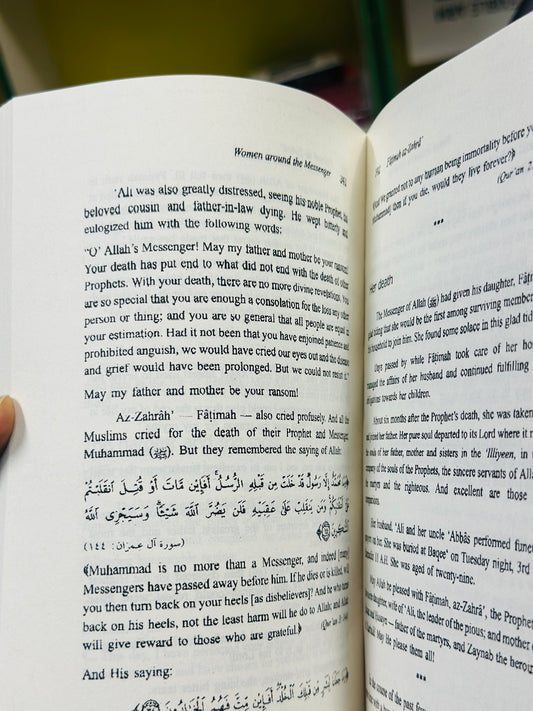 Women around the Messenger
'Ali was also greatly distressed, seeing his noble Prophet, his
beloved cousin and father-in-law dying. He wept bitterly and
eulogized him with the following words:
"O' Allah's Messenger! May my father and mother be your ransom!
Your death has put end to what did not end with the death of other
Prophets. With your death, there are no more divine revelations. You
are so special that you are enough a consolation for the loss any other
person or thing; and you are so general that all people are equal in
your estimation. Had it not been that you have enjoined patience and
prohibited anguish, we would have cried our eyes out and the disease
and grief would have been prolonged. But we could not resist it."
May my father and mother be your ransom!
Az-Zahrâh' — Fâtimah — also cried profusely. And all the
Muslims cried for the death of their Prophet and Messenger
Muhammad (ﷺ). But they remembered the saying of Allah:
وَمَا مُحَمَّدٌ إِلَّا رَسُولٌ قَدْ خَلَتْ مِن قَبْلِهِ الرُّسُلُ أَفَإِيْن مَّاتَ أَوْ قُتِلَ انقَلَبْتُمْ
عَلَىٰ أَعْقَابِكُمْ وَمَن يَنقَلِبْ عَلَىٰ عَقِبَيْهِ فَلَن يَضُرَّ اللَّهَ شَيْئًا وَسَيَجْزِى اللَّهُ
الشَّاكِرِينَ
(سورة آل عمران: ١٤٤)
﴾Muhammad is no more than a Messenger, and indeed [many]
Messengers have passed away before him. If he dies or is killed, will
you then turn back on your heels [as disbelievers]? And he who turns
back on his heels, not the least harm will he do to Allah; and Allah
will give reward to those who are grateful.﴿ (Qur'an 3:144)
And His saying:
وَمَا جَعَلْنَا لِبَشَرٍ مِّن قَبْلِكَ الْخُلْدَ أَفَإِيْن مِّتَّ فَهُمُ الْخَالِدُونَ
Fâtimah az-Zahrâ'
We granted not to any human being immortality before yo
Muhammad] then if you die, would they live forever?﴿
(Qur'an 2
***
Her death
The Messenger of Allah (ﷺ) had given his daughter, Fâtim
glad tiding that she would be the first among surviving member
his household to join him. She found some solace in this glad tid
Days passed by while Fâtimah took care of her ho
managed the affairs of her husband and continued fulfilling
obligations towards her children.
About six months after the Prophet's death, she was taken
and joined her father. Her pure soul departed to its Lord where it m
souls of her father, mother and sisters in the 'Illiyeen, in t
company of the souls of the Prophets, the sincere servants of All
martyrs and the righteous. And excellent are those
companions.
Her husband, 'Ali and her uncle 'Abbâs performed funer
prayer on her. She was buried at Baqee' on Tuesday night, 3rd
11 A.H. She was aged of twenty-nine.
May Allah be pleased with Fâtimah, az-Zahrâ', the Prophet
daughter, wife of 'Ali, the leader of the pious; and mother o
and Husayn — father of the martyrs, and Zaynab the herou
May He please them all!
***
In the course of the past few